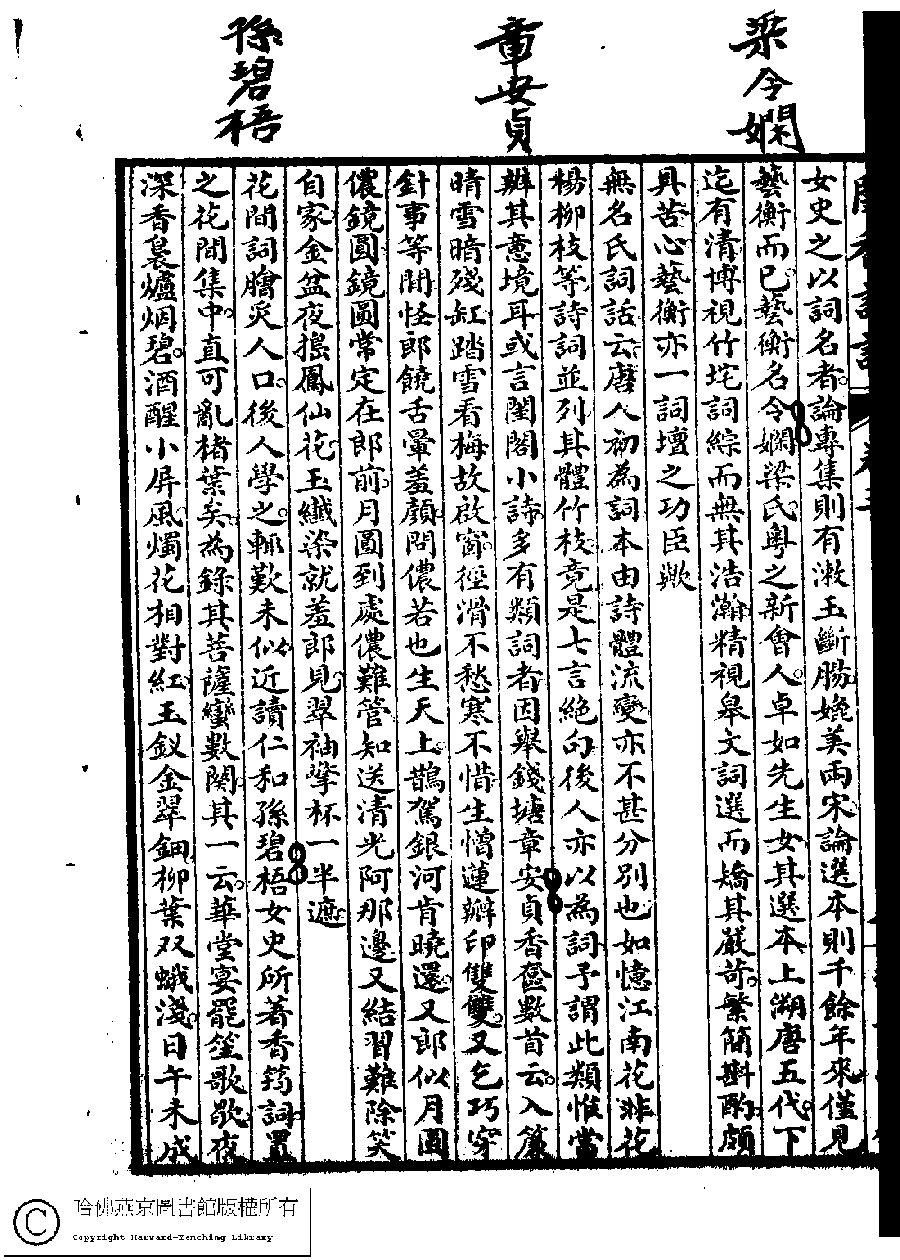 梁令嫻
章安貞
孫碧梧
女史之以詞名者論專集則有漱玉斷腸媲美兩宋論選本則千餘年來僅見
藝衡而已藝衡名令嫻梁氏粵之新會人卓如先生女其選本上溯唐五代下
迄有清博視竹垞詞綜而無其浩瀚精視皋文詞選而矯其嚴苛繁簡斟酌頗
具苦心藝衡亦一詞壇之功臣歟
無名氏詞話云唐人初為詞本由詩體流變亦不甚分別也如憶江南花非花
楊柳枝等詩詞並列其體竹枝竟是七言絕句後人亦以為詞予謂此類惟當
辨其意境耳或言閨閣小詩多有類詞者因舉錢塘章安貞香奩數首云入簾
晴雪暗殘缸踏雪看梅故啟窗徑滑不愁寒不惜生憎蓮瓣印雙雙又乞巧穿
針事等閒怪郎饒舌暈羞顏問儂若也生天上鵲駕銀河肯曉還又郎似月圓
儂鏡圓鏡圓常定在郎前月圓到處儂難管知送清光阿那邊又結習難除笑
自家金盆夜搗鳳仙花玉纖染就羞郎見翠袖擎杯一半遮
花間詞膾炙人口後人學之輒歎未似近讀仁和孫碧梧女史所著香筠詞置
之花間集中直可亂楮葉矣為錄其菩薩蠻數闋其一云華堂宴罷笙歌歇夜
深香裊爐烟碧酒醒小屏風燭花相對紅玉釵金翠鈿柳葉双蛾淺日午未成
哈佛燕京圖書館版權所有
Copyright Harvard-Yenching Library